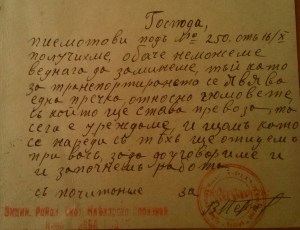 Господа,
писмото ви подъ № 250. отъ 16/X
получихме, обаче неможеме
веднага да заминеме, тъй като
за транспортирането се явява
една пречка относно
съ който ще става превоза, то
сега е уреждаме, и щомъ като
се нареди съ тѣхъ ще отидеме
при васъ, за да договориме и
и започнемъ работа
съ почитание за